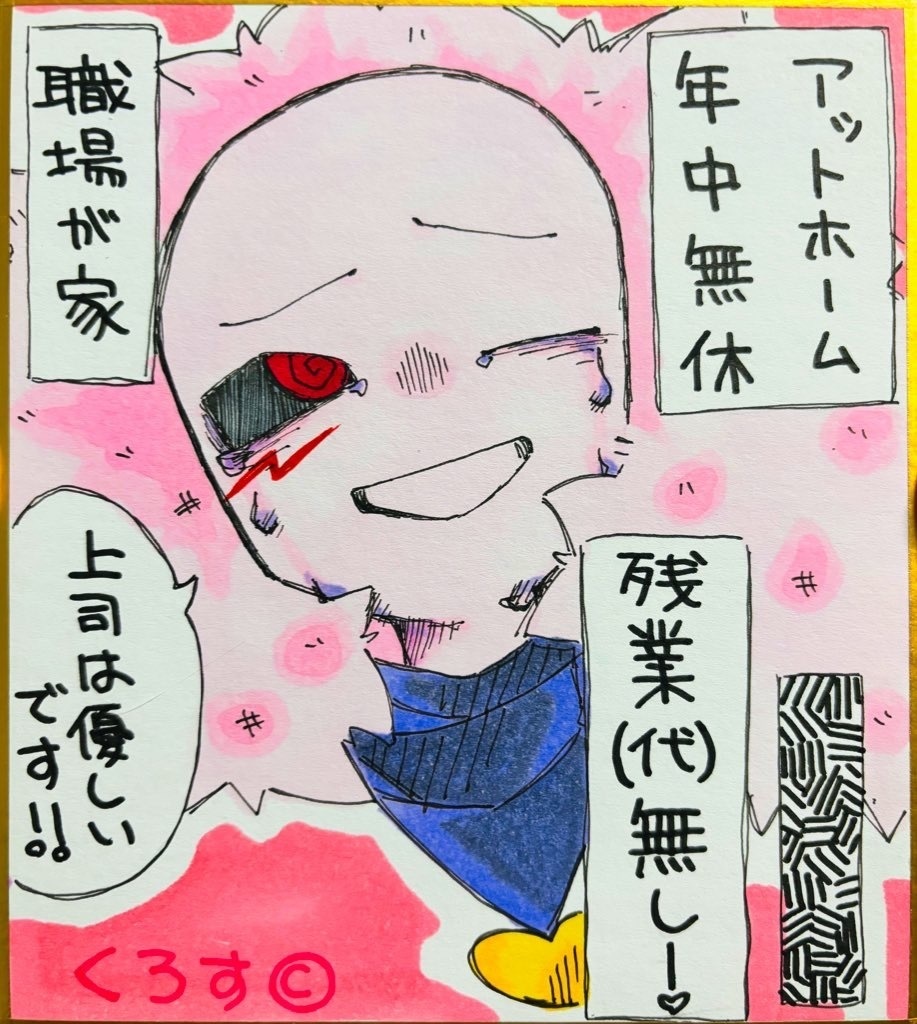 アットホーム
年中無休
職場が家
上司は優しい
です!!
残業(代)無しー♡
くろす©